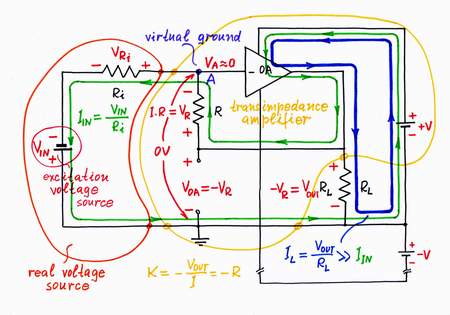 virtual ground
V_Ri
V_A≈0
A
OA
R_i
I_IN = V_IN / R_i
I.R = V_R
R
transimpedance
amplifier
+V
V_IN
0V
excitation
voltage
source
V_OA = -V_R
-V_R = V_OUT
R_L
R_L
I_L = V_OUT / R_L >> I_IN
-V
real voltage
source
K = - V_OUT / I = -R